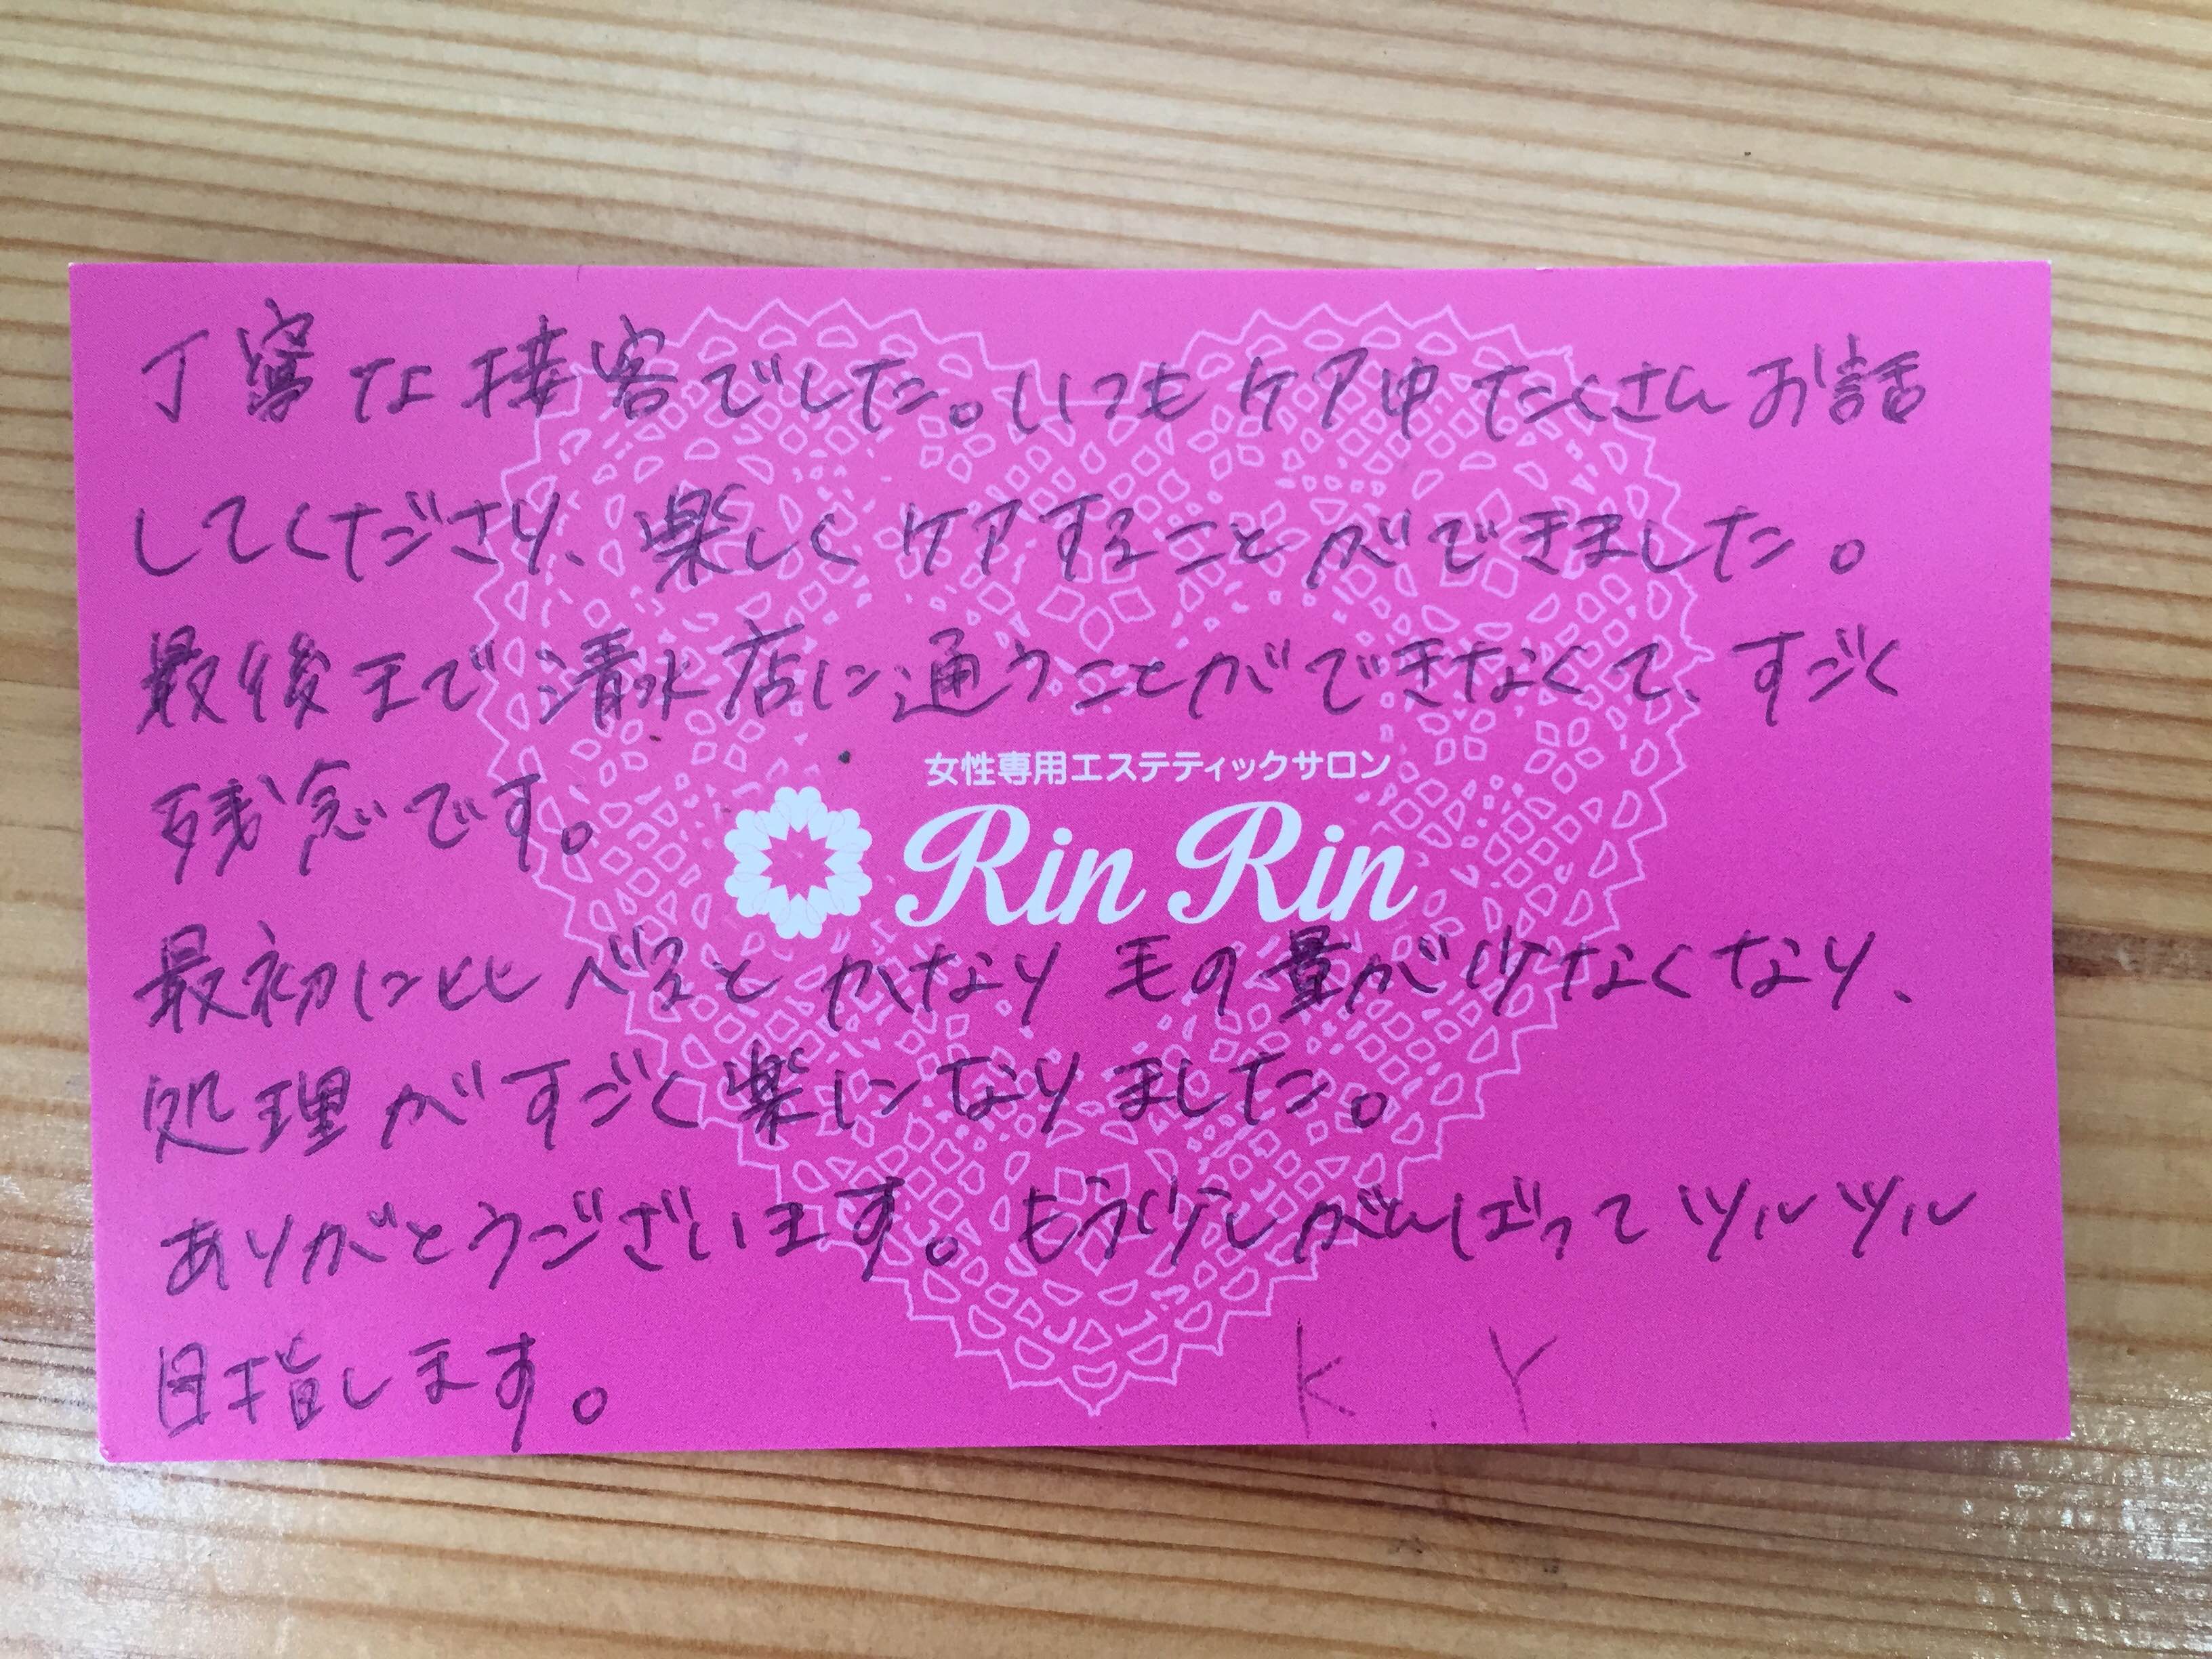 丁寧な接客でした。いつもケア中たくさんお話
してくださり、楽しくケアすることができました。
最後まで清水店に通うことができなくて、すごく
残念です。
女性専用エステティックサロン
Rin Rin
最初に比べるとかなり毛の量が少なくなり、
処理がすごく楽になりました。
ありがとうございます。もう少しがんばってツルツル
目指します。
K.Y